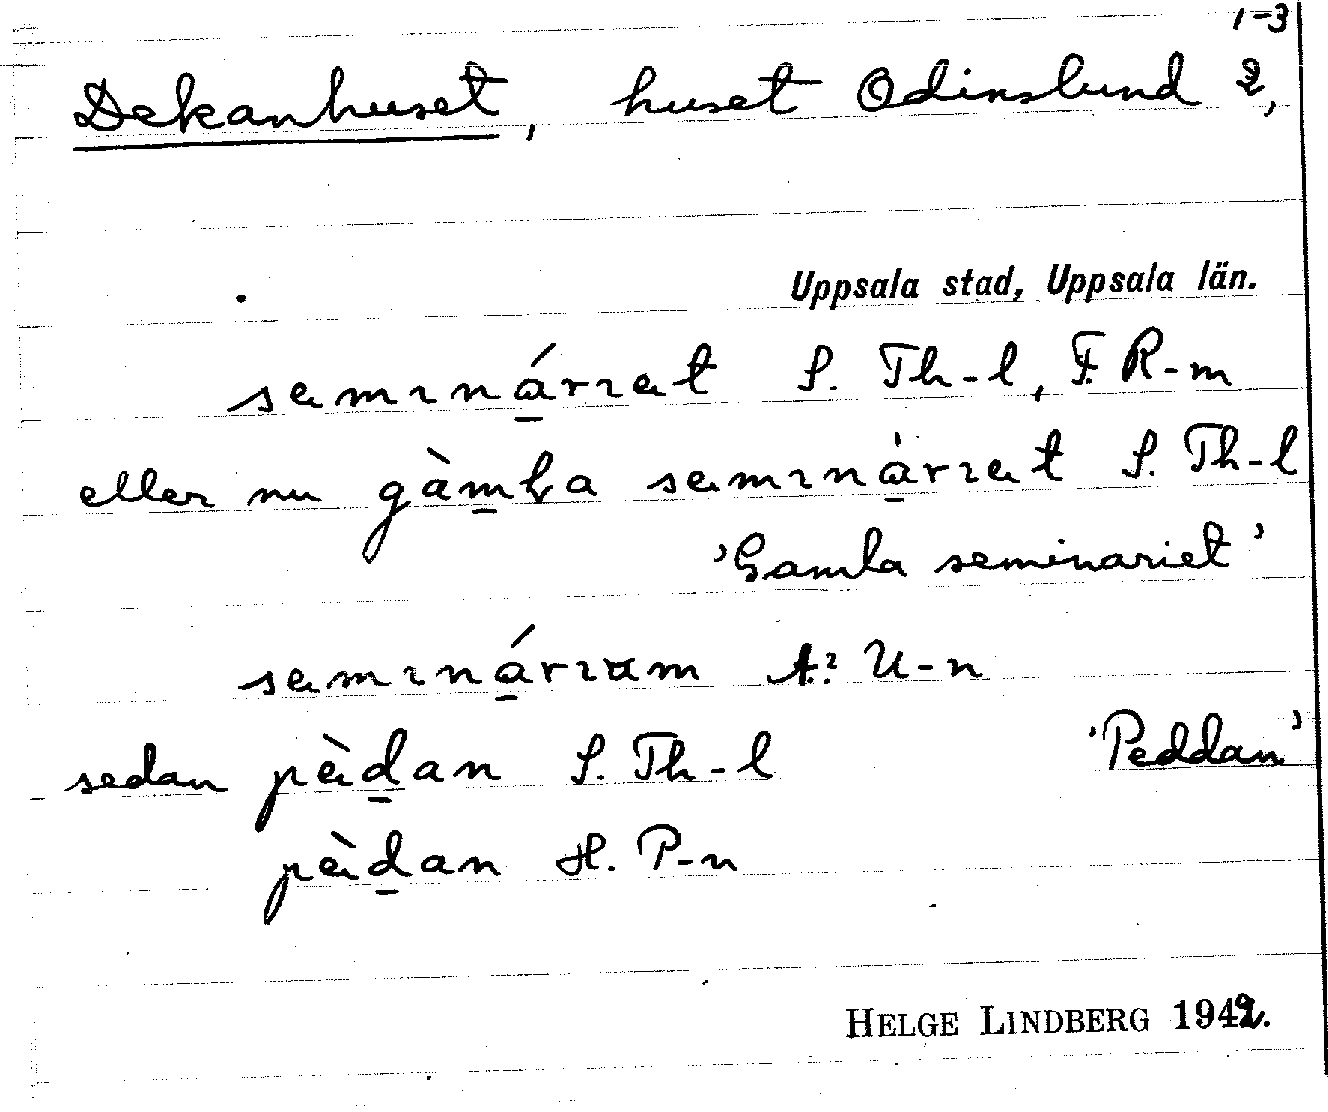 1-3
Dekanhuset, huset Odinslund 2,
Uppsala stad, Uppsala län.
semɪnárɪet S. Th-l, F. R-m
eller nu gàmɫa semɪnàrɪet S. Th-l
'Gamla seminariet'
semɪnárɪum A: U-n
sedan pèdan S. Th-l 'Peddan'
pèdan H. P-n
HELGE LINDBERG 1942.